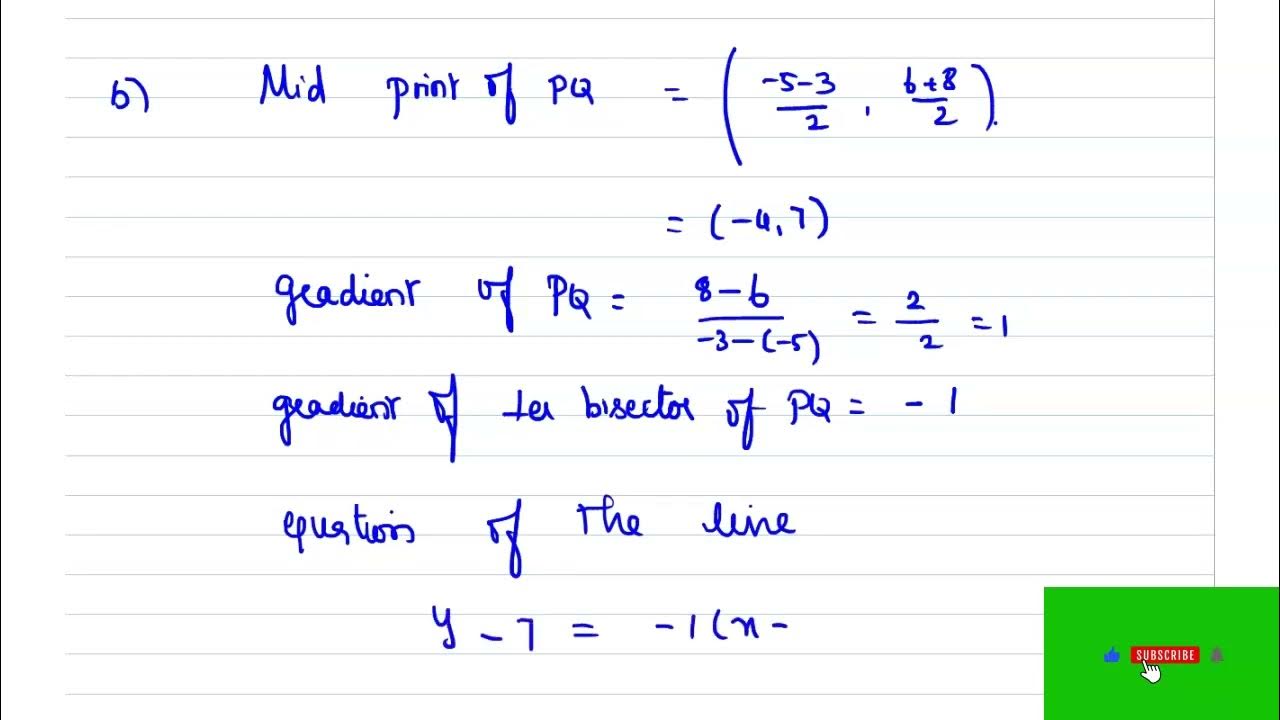 b) Mid point of PQ = ( -5-3/2 , 6+8/2 ).
= (-4, 7)
gradient of PQ = 8-6/-3-(-5) = 2/2 = 1
gradient of ⊥er bisector of PQ = -1
equation of the line
y - 7 = -1(x -
SUBSCRIBE